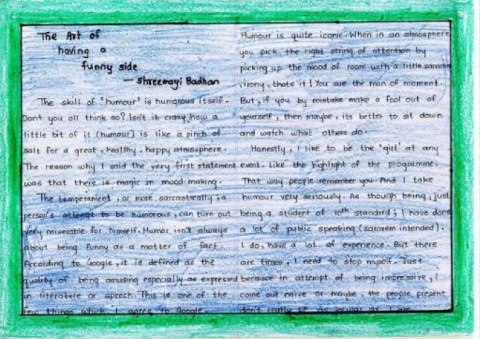 The Art of
having a
funny side
— Shreemayi Badhan
The skill of 'humour' is humorous itself.
Dont you all think so? Isn't it crazy, how a
little bit of it (humour) is like a pinch of
salt for a great, healhy, happy atmosphere.
The reason why I said the very first statement
was that there is magic in mood making.
The temperament, or more sarcastically, a
person's attempt to be humorous, can turn out
very miserable for himself. Humor isn't always
about being funny as a matter of fact.
According to Google, it is defined as the
quality of being amusing especially as expressed
in literature or speech. This is one of the
few things which I agree to Google.
Humour is quite iconic. When in an atmosphere
you pick the right string of attention by
picking up the mood of room with a little sarcasm
, irony, thats it! You are the man of moment.
But, if you by mistake make a fool out of
yourself, then maybe, its better to sit down
and watch what others do.
Honestly, I like to be the 'girl' at any
event. Like the highlight of the programme.
That way people remember you. And I take
humour very seriously. As though being, just
being a student of 10th standard, I have done
a lot of public speaking (sarcasm intended).
I do, have a lot of experience. But there
are times, I need to stop myself. Just
because in attempt of being impressive, I
come out naive or maybe, the people present
don't really as I are